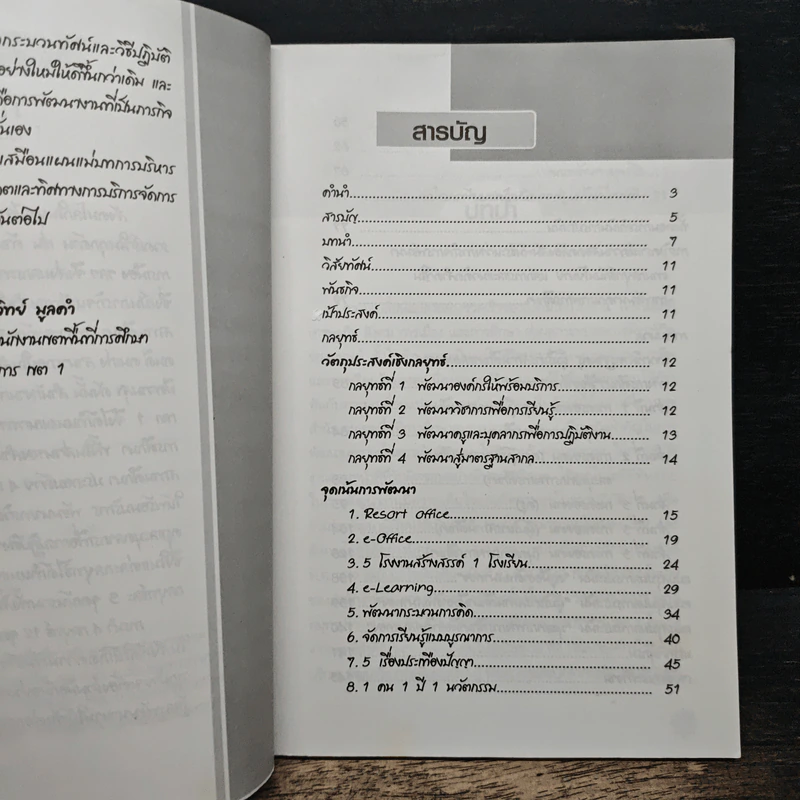 กระบวนทัศน์และวิธีปฏิบัติ
อย่างใหม่ให้ดีขึ้นกว่าเดิม และ
คือการพัฒนางานที่เป็นภารกิจ
นั่นเอง
เสมือนแผนแม่บทการบริหาร
และทิศทางการบริการจัดการ
กันต่อไป
วิทย์ มูลคำ
นักงานเขตพื้นที่การศึกษา
การ เขต 1
สารบัญ
คำนำ 3
สารบัญ 5
บทนำ 7
วิสัยทัศน์ 11
พันธกิจ 11
เป้าประสงค์ 11
กลยุทธ์ 11
วัตถุประสงค์เชิงกลยุทธ์ 12
กลยุทธ์ที่ 1 พัฒนาองค์กรให้พร้อมบริการ 12
กลยุทธ์ที่ 2 พัฒนาวิชาการเพื่อการเรียนรู้ 12
กลยุทธ์ที่ 3 พัฒนาครูและบุคลากรเพื่อการปฏิบัติงาน 13
กลยุทธ์ที่ 4 พัฒนาสู่มาตรฐานสากล 14
จุดเน้นการพัฒนา
1. Resort Office 15
2. e-Office 19
3. 5 โรงงานสร้างสรรค์ 1 โรงเรียน 24
4. e-Learning 29
5. พัฒนากระบวนการคิด 34
6. จัดการเรียนรู้แบบบูรณาการ 40
7. 5 เรื่องประเทืองปัญญา 45
8. 1 คน 1 ปี 1 นวัตกรรม 51